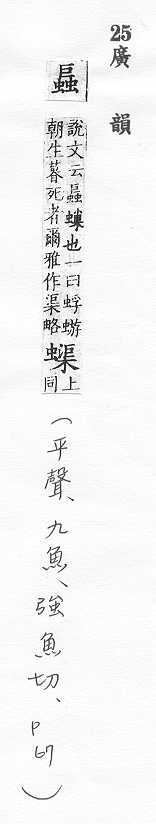 25 廣韻
說文云螻也一曰蜉蝣
朝生暮死者爾雅作渠略
上同
(平聲、九魚、強魚切、P67)